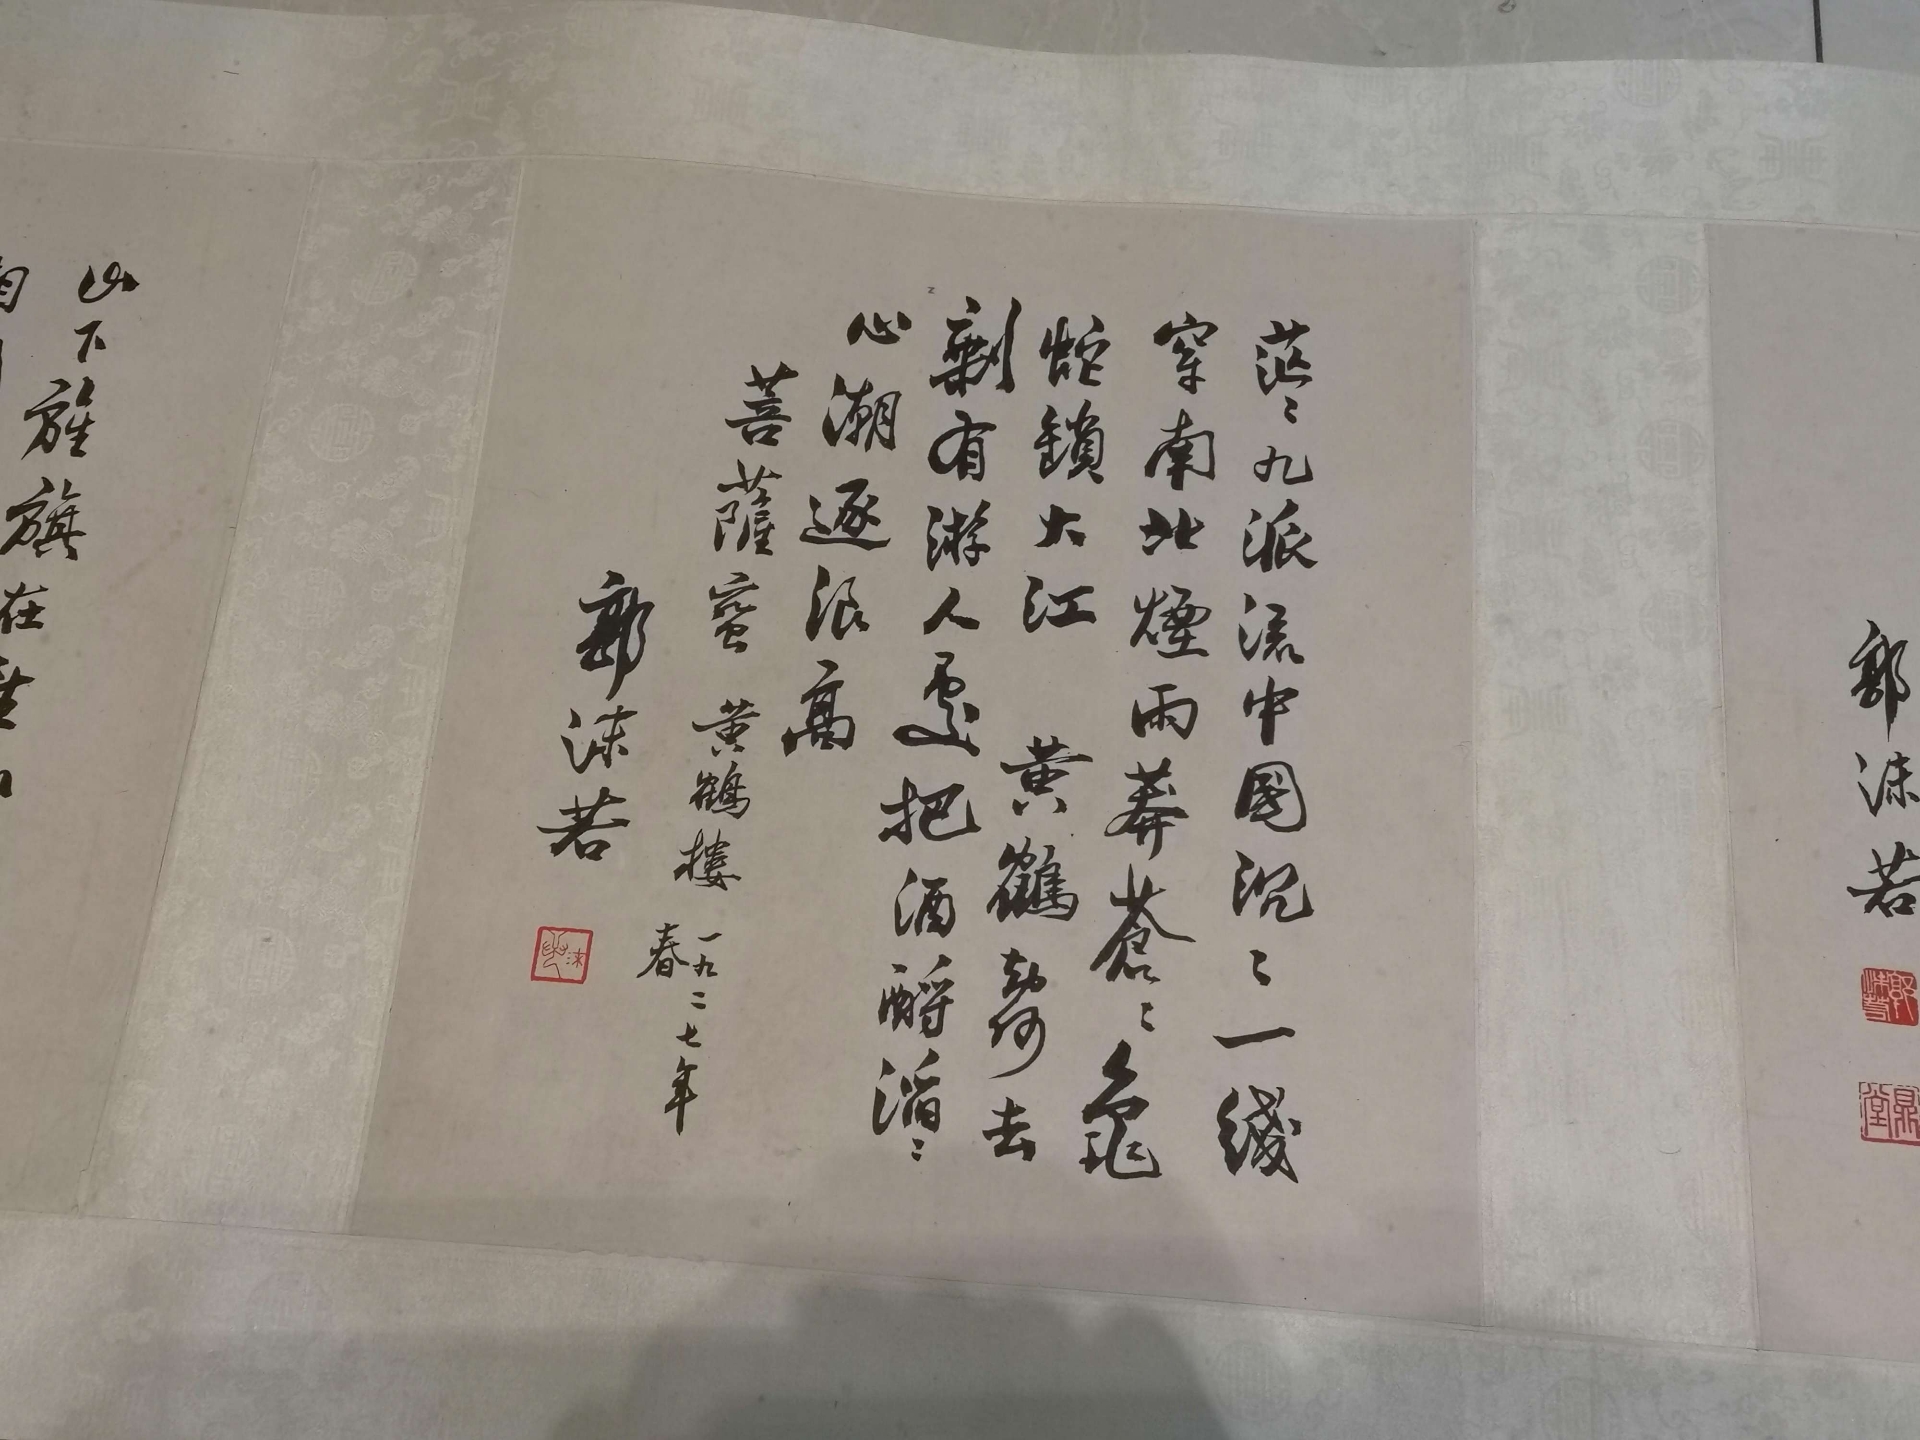 郭沫若
郭沫若
鼎堂
茫〻九派流中國沉〻一綫
穿南北煙雨莽蒼〻龜
蛇鎖大江 黃鶴知何去
剩有游人處把酒酹滔〻
心潮逐浪高
菩薩蠻 黃鶴樓 一九二七年
春
郭沫若
山下旌旗在